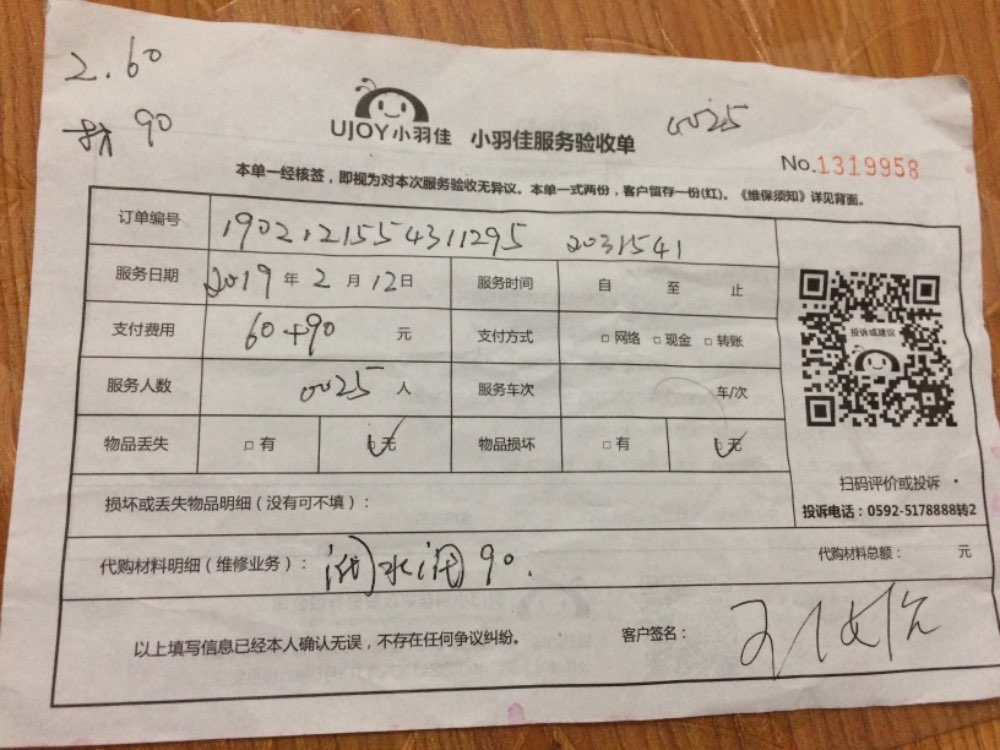 2.60
90
UJOY小羽佳 小羽佳服务验收单
0025
No.1319958
本单一经核签，即视为对本次服务验收无异议。本单一式两份，客户留存一份(红)。《维保须知》详见背面。
订单编号 1902121554311295 2031541
服务日期 2019年2月12日 服务时间 自 至 止
支付费用 60+90 元 支付方式 □网络 □现金 □转账
服务人数 0025人 服务车次 车/次
物品丢失 □有 □无 物品损坏 □有 □无
投诉或建议
扫码评价或投诉
投诉电话：0592-5178888转2
损坏或丢失物品明细（没有可不填）：
代购材料明细（维修业务）： 水 90. 代购材料总额： 元
以上填写信息已经本人确认无误，不存在任何争议纠纷。 客户签名：